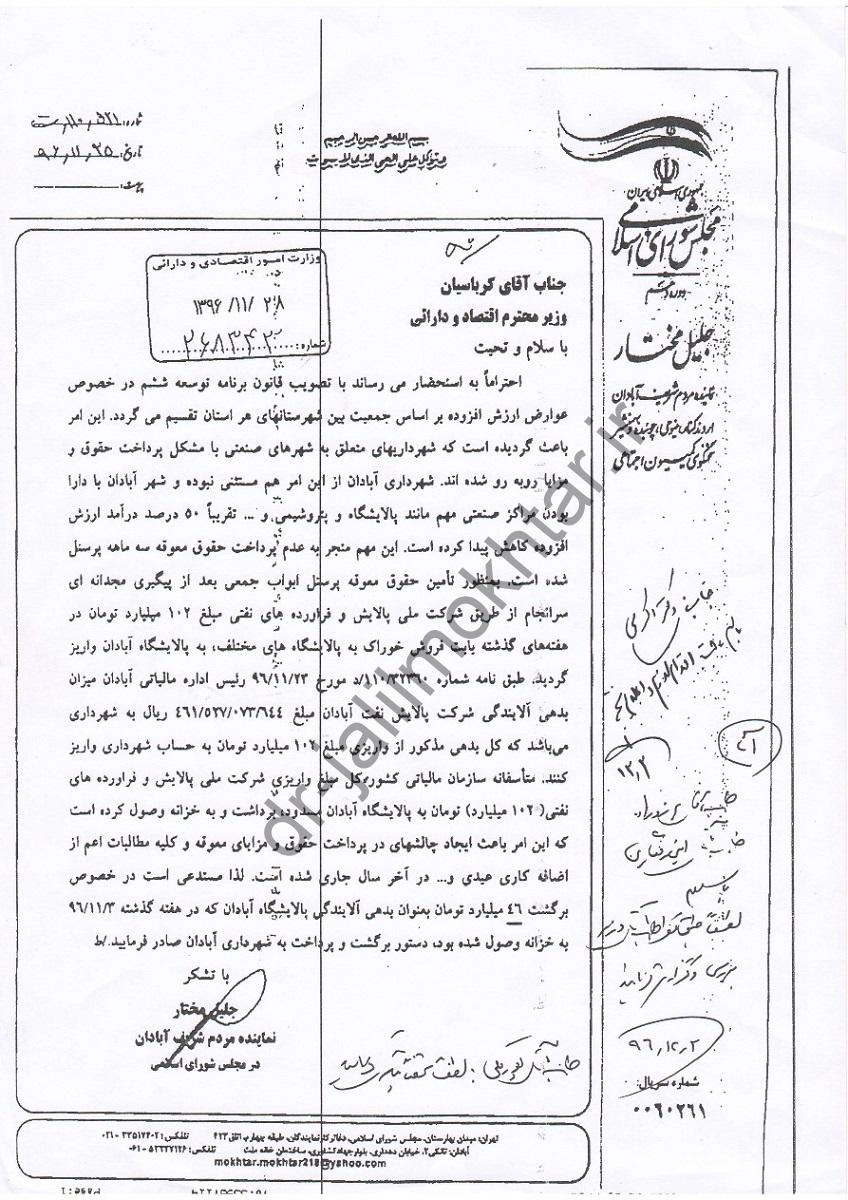 بسم الله الرحمن الرحیم
و توکل علی الحی الذی لا یموت
شماره:
تاریخ: ۹۶٫۱۱٫۲۵
پیوست:
جمهوری اسلامی ایران
مجلس شورای اسلامی
دوره دهم
جلیل مختار
نماینده مردم شریف آبادان
اروندکنار، مینوشهر، چوئبده و خسروآباد
سخنگوی کمیسیون اجتماعی
وزارت امور اقتصادی و دارائی
۱۳۹۶/۱۱/۲۸
شماره: ۲۶۸۳۴۲
جناب آقای کرباسیان
وزیر محترم اقتصاد و دارائی
با سلام و تحیت
احتراماً به استحضار می رساند با تصویب قانون برنامه توسعه ششم در خصوص
عوارض ارزش افزوده بر اساس جمعیت بین شهرستانهای هر استان تقسیم می گردد. این امر
باعث گردیده است که شهرداریهای متعلق به شهرهای صنعتی با مشکل پرداخت حقوق و
مزایا روبه رو شده اند. شهرداری آبادان از این امر هم مستثنی نبوده و شهر آبادان با دارا
بودن مراکز صنعتی مهم مانند پالایشگاه و پتروشیمی و ... تقریباً ۵۰ درصد درآمد ارزش
افزوده کاهش پیدا کرده است. این مهم منجر به عدم پرداخت حقوق معوقه سه ماهه پرسنل
شده است. بمنظور تأمین حقوق معوقه پرسنل ابواب جمعی بعد از پیگیری مجدانه ای
سرانجام از طریق شرکت ملی پالایش و فراورده های نفتی مبلغ ۱۰۲ میلیارد تومان در
هفته‌های گذشته بابت فروش خوراک به پالایشگاه های مختلف، به پالایشگاه آبادان واریز
گردید. طبق نامه شماره ۱۱۰/۳۲۳۶۰/د مورخ ۹۶/۱۱/۲۳ رئیس اداره مالیاتی آبادان میزان
بدهی آلایندگی شرکت پالایش نفت آبادان مبلغ ۴۶۱/۵۳۷/۰۷۳/۶۴۴ ریال به شهرداری
می‌باشد که کل بدهی مذکور از واریزی مبلغ ۱۰۲ میلیارد تومان به حساب شهرداری واریز
کنند. متأسفانه سازمان مالیاتی کشور کل مبلغ واریزی شرکت ملی پالایش و فراورده های
نفتی( ۱۰۲ میلیارد) تومان به پالایشگاه آبادان مسدود، برداشت و به خزانه وصول کرده است
که این امر باعث ایجاد چالشهای در پرداخت حقوق و مزایای معوقه و کلیه مطالبات اعم از
اضافه کاری عیدی و... در آخر سال جاری شده است. لذا مستدعی است در خصوص
برگشت ۴۶ میلیارد تومان بعنوان بدهی آلایندگی پالایشگاه آبادان که در هفته گذشته ۹۶/۱۱/۳
به خزانه وصول شده بود، دستور برگشت و پرداخت به شهرداری آبادان صادر فرمایید./ط
با تشکر
جلیل مختار
نماینده مردم شریف آبادان
در مجلس شورای اسلامی
۹۶٫۱۲٫۲
شماره سریال:
۰۰۶۰۲۶۱
تهران: میدان بهارستان، مجلس شورای اسلامی، دفاتر کار نمایندگان، طبقه چهارم، اتاق ۴۲۳ تلفکس: ۳۳۵۱۷۴۰۲ - ۰۲۱
آبادان: تانکی۲، خیابان دهداری، بلوار جهادکشاورزی، ساختمان خانه ملت تلفکس: ۵۳۳۳۷۱۲۶ - ۰۶۱
mokhtar.mokhtar218@yahoo.com
dr-jalilmokhtar.ir